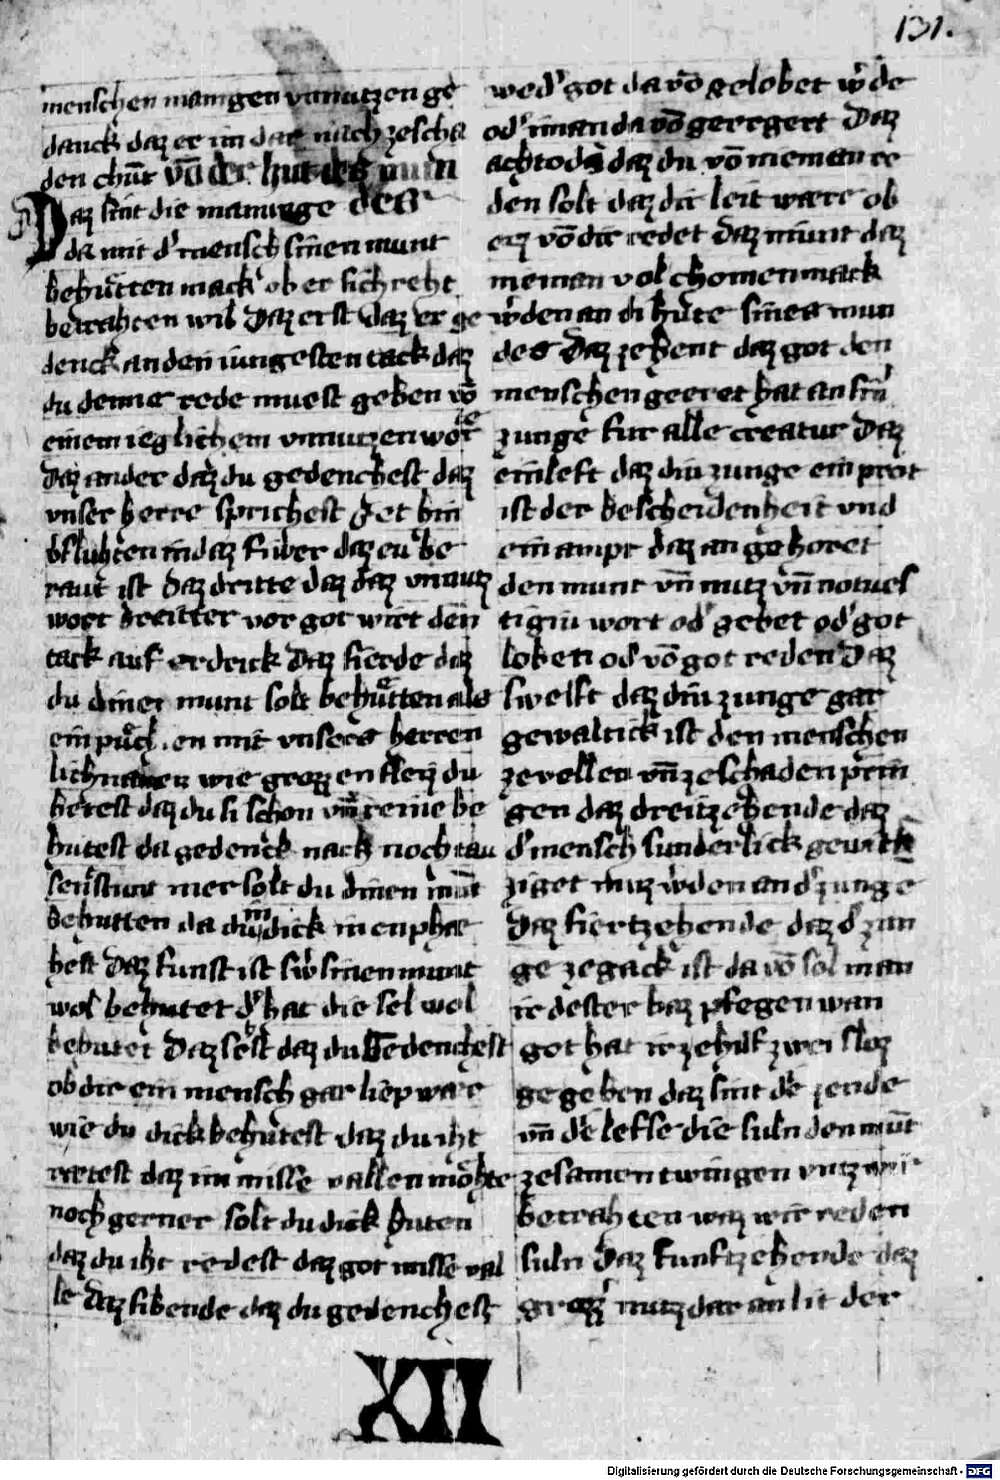 131.
menschen manigen vnnutzen ge
danck daz er im dar nach ze scha
den chūt vō der hut des mun
Daz sint die manunge des
da mit d' mensch sinen munt
behuͤtten mack ob er sich reht
betrahten wil Daz erst daz er ge
denck an den iungesten tack daz
du denne rede muest geben vō
einem ieglichem vnnutzen worte
Daz ander daz du gedenchest daz
vnser herre sprichest Get hin
v̓fluhten in daz fiwer daz eu be
rait ist Daz dritte daz daz vnnutz
wort breitter vor got wirt den
tack auf erdrick Daz fierde daz
du dinen munt solt behuͤtten als
ein puͤch en mit vnsers herren
lichnamen wie grozzen fleiz du
herest daz du si schon vn̄ reine be
hutest da gedenck nach noch tau
senstunt mer solt du dinen mūt
behutten da du in dick in enphae
hest Daz funft ist sw̓ sinen munt
wol behutet d' hat die sel wol
behutet Daz sehst daz du bedenchest
ob dir ein mensch gar liep ware
wie du dick behutest daz du iht
retest daz im misse vallen moͤhte
noch gerner solt du dick huten
daz du iht redest daz got misse val
le Daz sibende daz du gedenchest
wed' got da vō gelobet w̓de
od' iman da vō geergert Daz
achtod daz du vō nieman re
den solt daz dir leit ware ob
erz vō dir redet Daz niunt daz
nieman vol chomen mack
w̓den an di hute sines mun
des Daz zehent daz got den
menschen geeret hat an sin'
zunge fur alle creatur Daz
einleft daz diu zunge ein preit
ist der bescheidenheit vnd
ein ampt daz an gehoret
den munt vn̄ nutz vn̄ notuef
tigiu wort od' gebet od' got
loben od' vō got reden Daz
swelft daz diu zunge gar
gewaltick ist den menschen
ze vellen vn̄ ze schaden prin
gen daz dreitzehende daz
d' mensch sunderlick gewitz
ziget muz w̓den an d' zunge
Daz fiertzehende daz d' zun
ge ze gack ist da vō sol man
ir dester baz pflegen wan
got hat ir ze hilf zwei sloz
gegeben daz sint die zende
vn̄ die lefse die suln den mūt
zesamen twingen vntz wir
betrahten waz wir reden
suln Daz funftzehende daz
grozz' nutz dar an lit der
XII
Digitalisierung gefördert durch die Deutsche Forschungsgemeinschaft - DFG